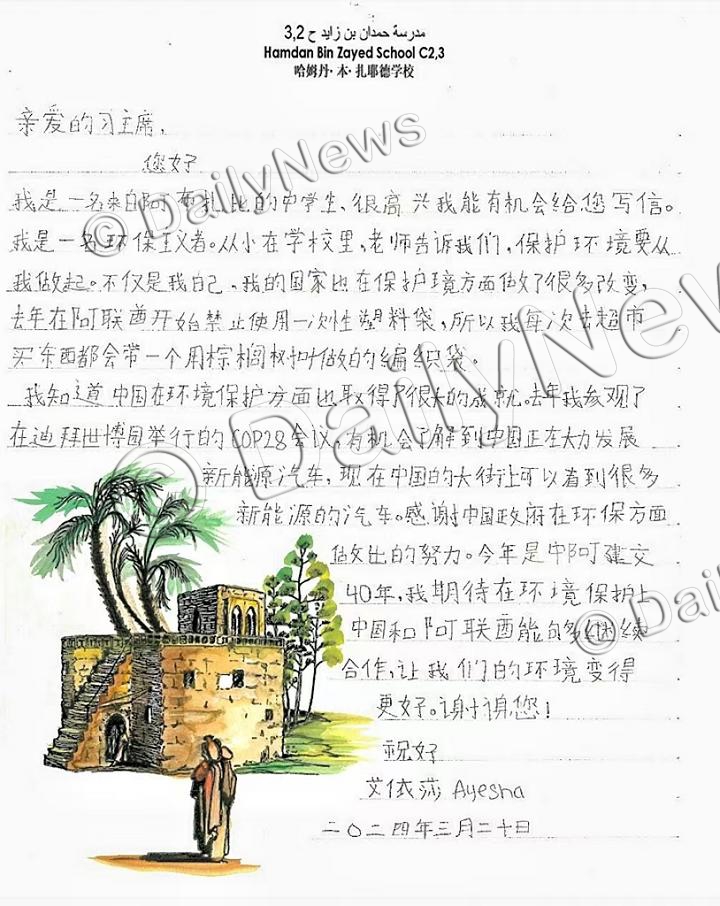 مدرسة حمدان بن زايد ح 3,2
Hamdan Bin Zayed School C2,3
哈姆丹·本·扎耶德学校
亲爱的习主席,
您好
我是一名来自阿布扎比的中学生、很高兴我能有机会给您写信。
我是一名环保主义者。从小在学校里,老师告诉我们,保护环境要从
我做起。不仅是我自己,我的国家也在保护环境方面做了很多改变,
去年在阿联酋开始禁止使用一次性塑料袋,所以我每次去超市
买东西都会带一个用棕榈树叶做的编织袋。
我知道中国在环境保护方面也取得了很大的成就。去年我参观了
在迪拜世博园举行的COP28会议,有机会了解到中国正在大力发展
新能源汽车,现在中国的大街上可以看到很多
新能源的汽车。感谢中国政府在环保方面
做出的努力。今年是中阿建交
40年,我期待在环境保护上
中国和阿联酋能够多继续
合作,让我们的环境变得
更好。谢谢您!
祝好
艾依莎 Ayesha
二〇二四年三月二十日
© DailyNews
© DailyNews
© Dai